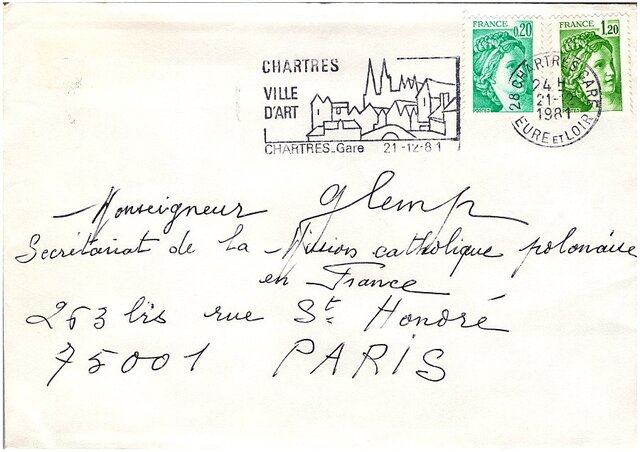 FRANCE 0,20
FRANCE 1,20
POSTES
CHARTRES
VILLE
D'ART
CHARTRES_Gare 21-12-81
28 CHARTRES GARE
24 H
21-12
1981
EURE ET LOIR
Monseigneur Glemp
Secrétariat de la Mission catholique polonaise
en France
263 bis rue St. Honoré
75001 PARIS